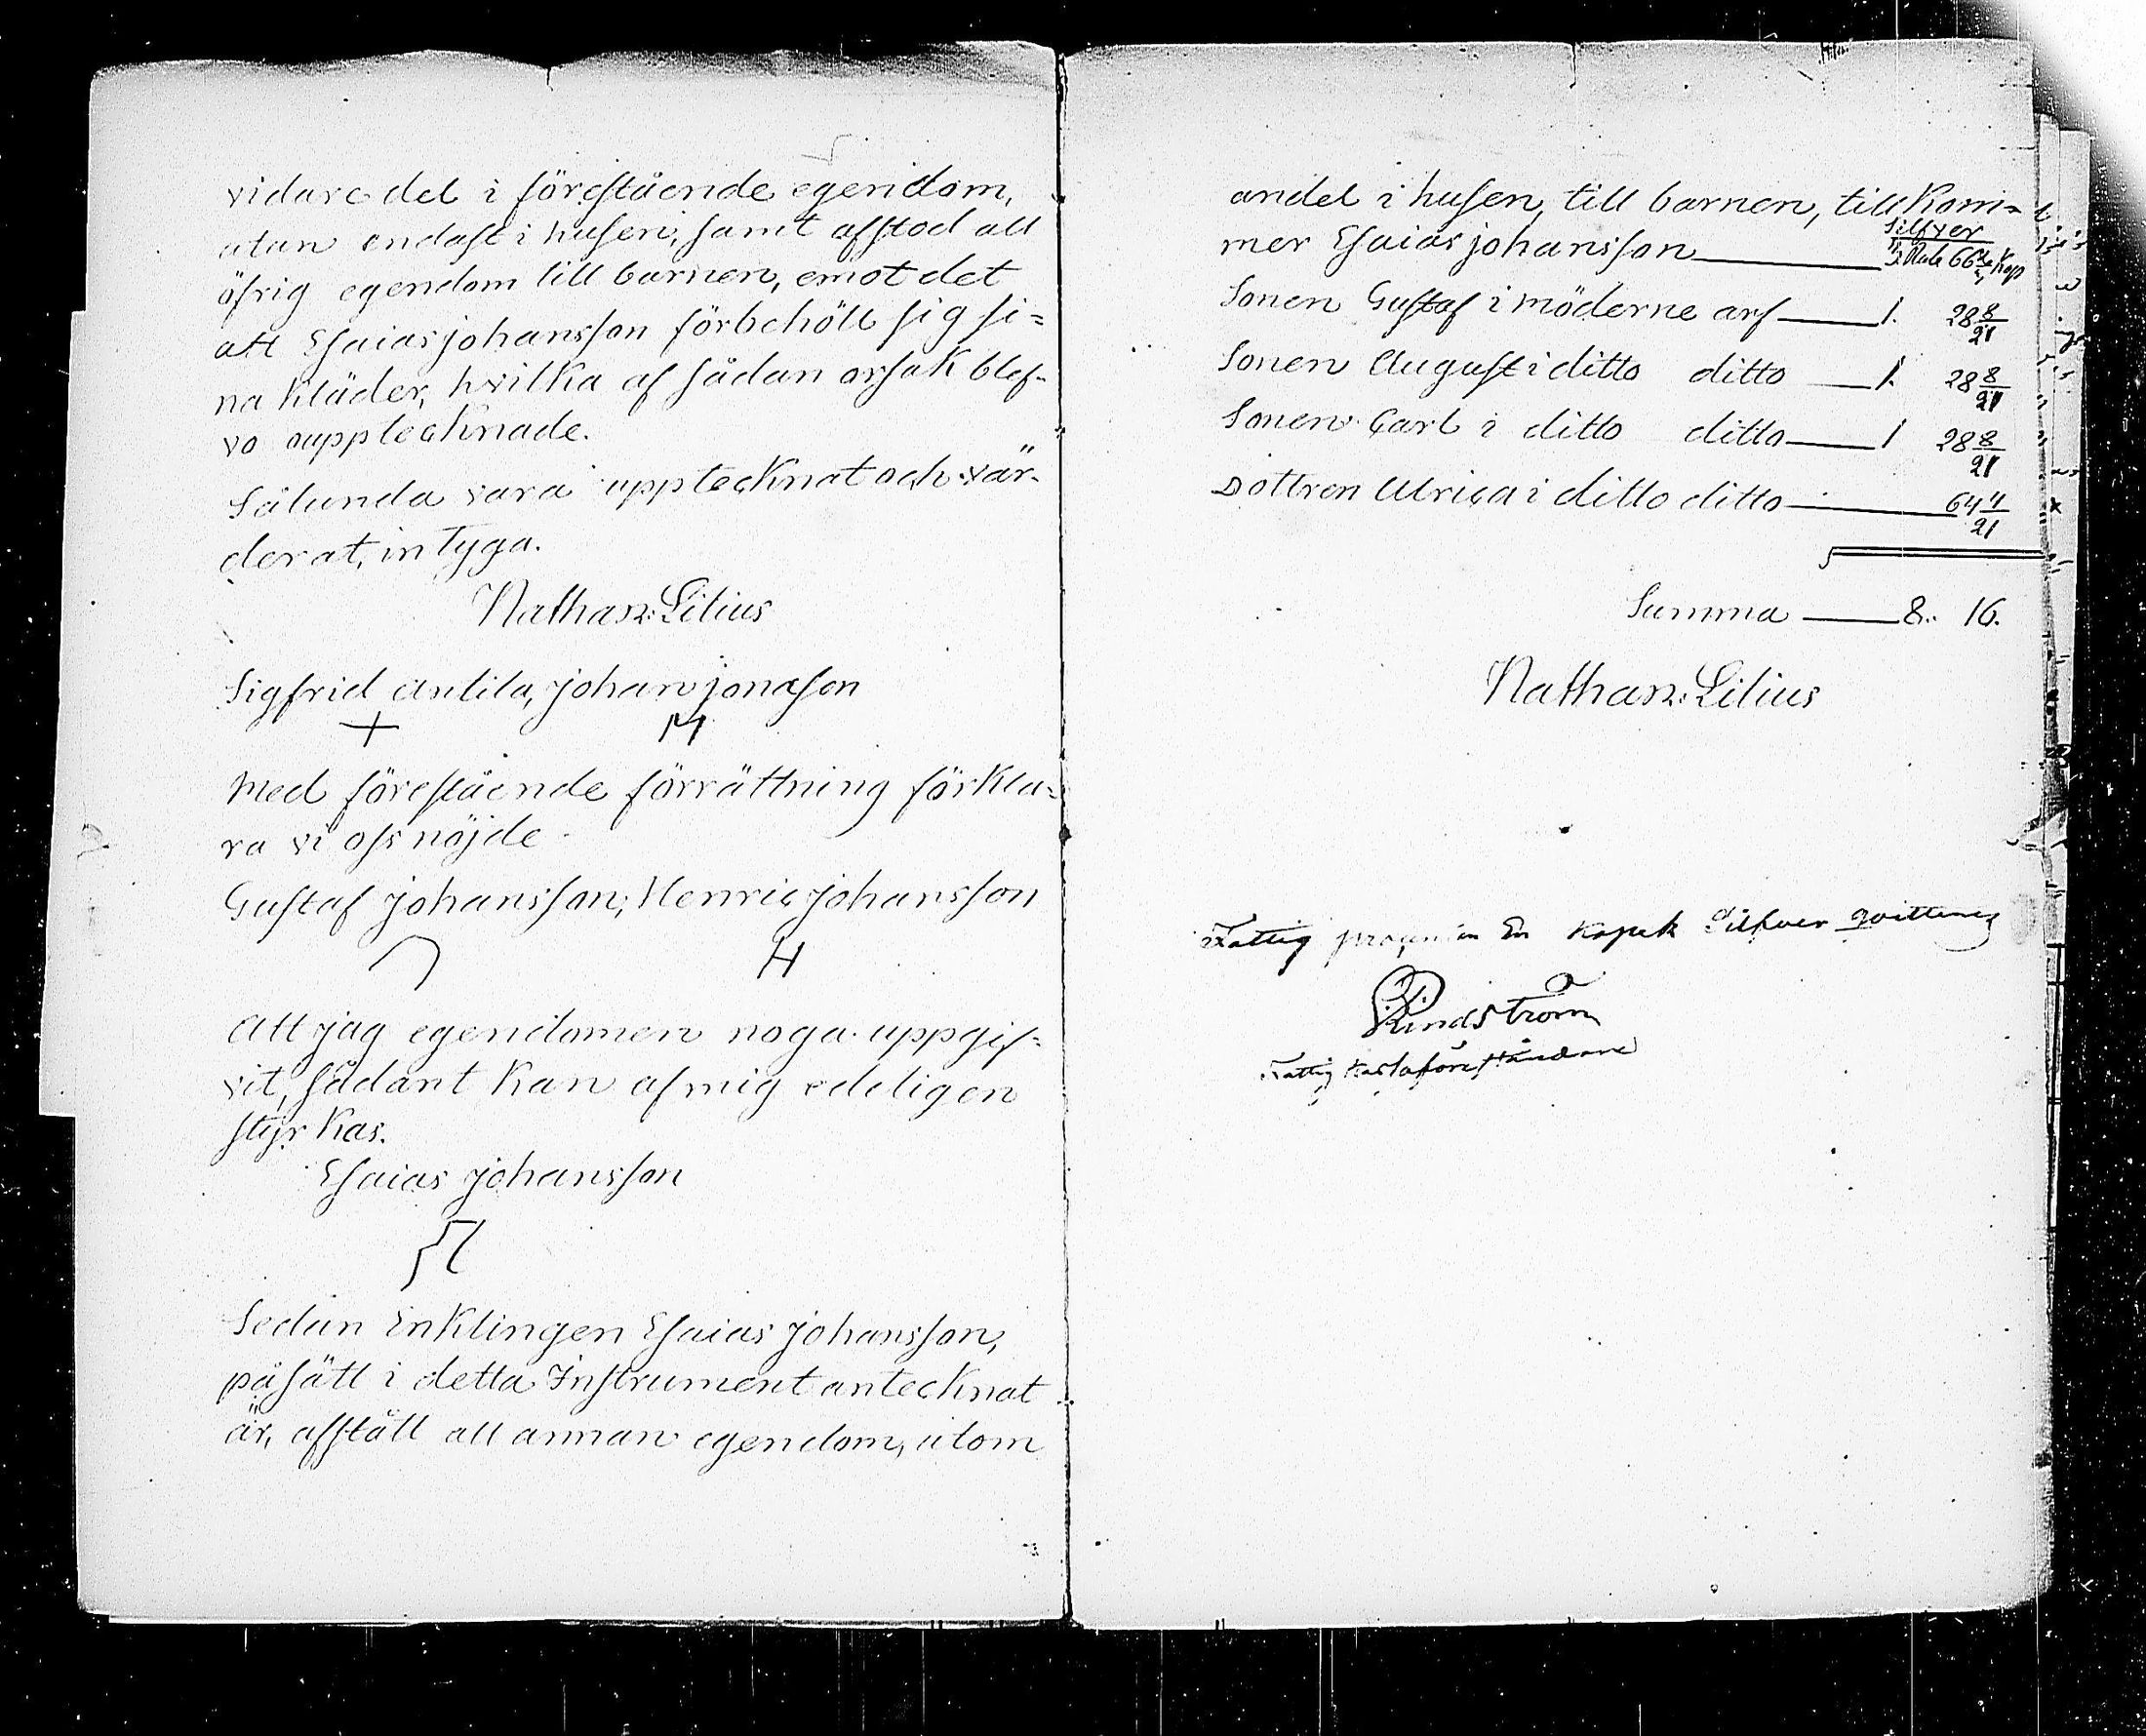 vidare del i förestående egendom,
utan endast i husen, samt afstod all
öfrig egendom till barnen, emot det
att Esaias Johansson förbehölt sig si=
na kläder, hvilka af sådan orsak blef-
vo oupptecknade.
Sålunda vara upptecknat och vär-
derat, intyga.
Nathan: Lilius
Sigfrid Antila, Johan Jonasson
Med förestående förrättning förkla=
ra vi oss nöjde
Gustaf Johansson, Henric Johansson
H
Att jag egendomen noga uppgif=
vit, sådant kan af mig edeligen
styrkas.
Esaias Johansson
Sedan Enklingen Esaias Johansson,
på sätt i detta Instrument antecknat
är, afstått all annan egendom, utom
andel i husen, till barnen, tillkom=
Silfver
mer Esaias Johansson 3. Rub 66 2/3 Kop
Sonen Gustaf i möderne arf 1. 28 8/21
Sonen August i ditto ditto 1. 28 8/21
Sonen Carl i ditto ditto 1 28 8/21
Dottren Ulrica i ditto ditto 64 4/21
Summa 8.. 16.
Nathan: Lilius
Fattig procenten En Kopek Silfver qvitteras
Lindström
Fattig Kassaföreståndare